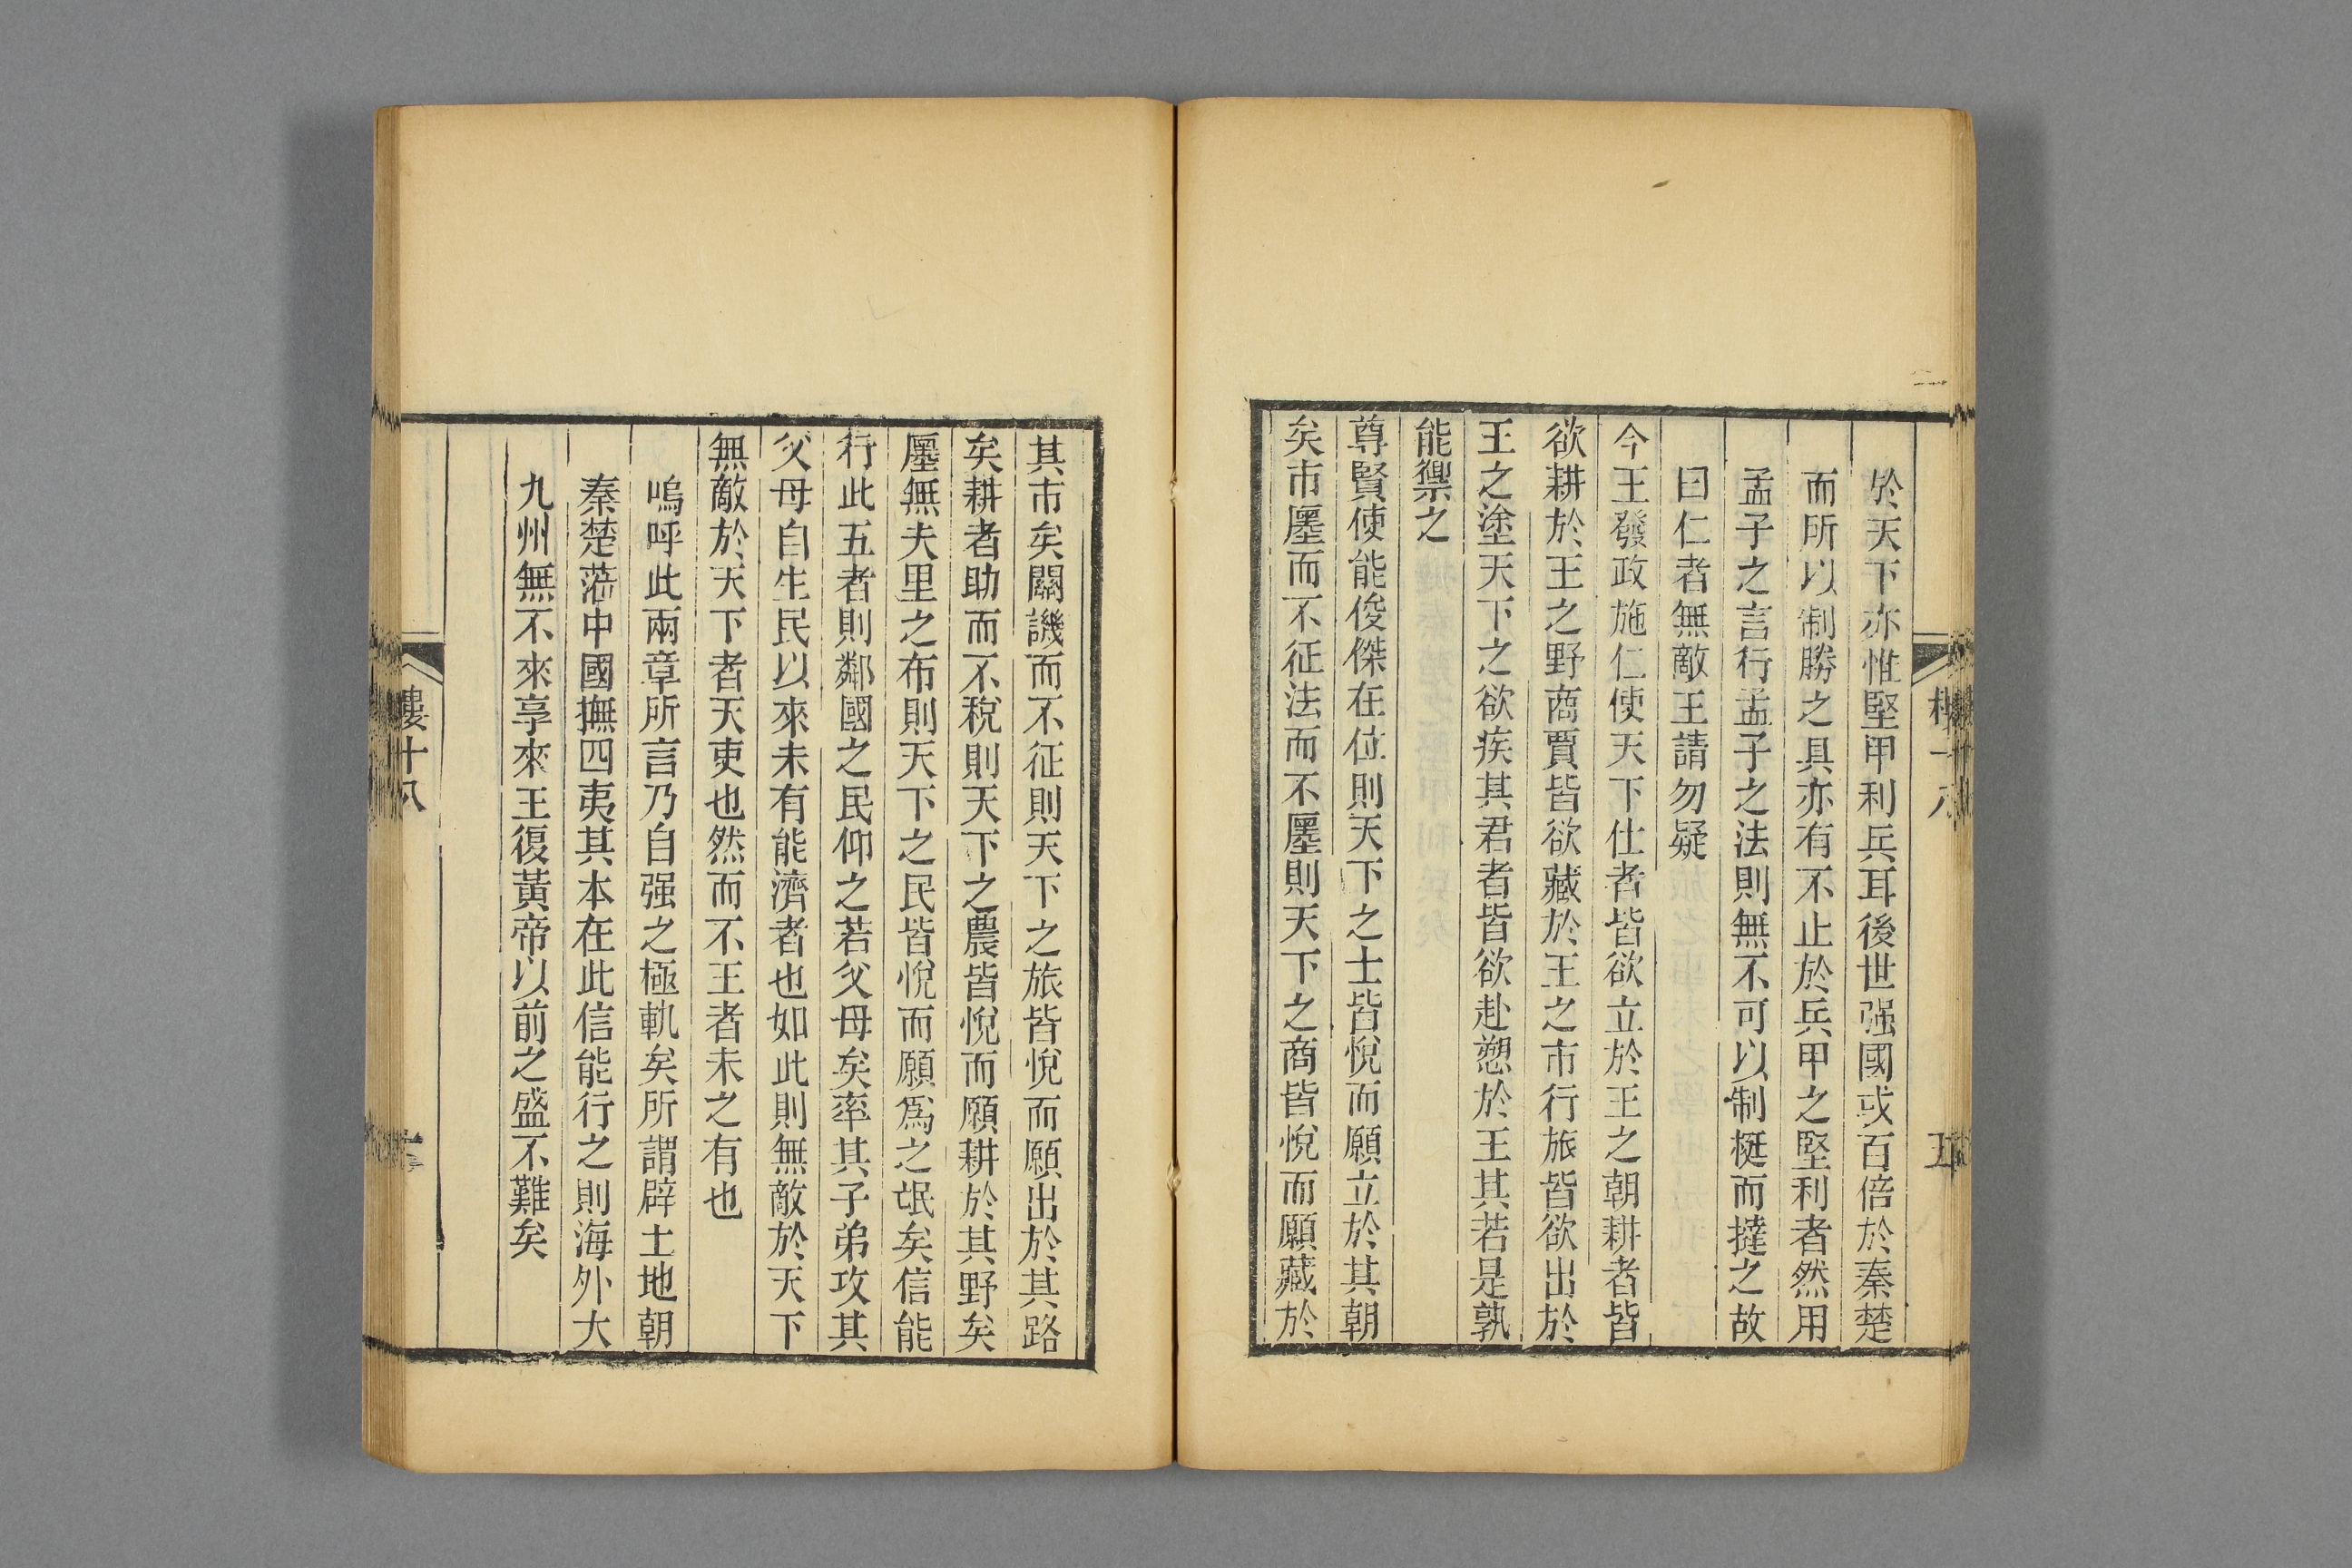 於天下亦惟堅甲利兵耳後世强國或百倍於秦楚
而所以制勝之具亦有不止於兵甲之堅利者然用
孟子之言行孟子之法則無不可以制梃而撻之故
曰仁者無敵王請勿疑
今王發政施仁使天下仕者皆欲立於王之朝耕者皆
欲耕於王之野商賈皆欲藏於王之市行旅皆欲出於
王之塗天下之欲疾其君者皆欲赴愬於王其若是孰
能禦之
尊賢使能俊傑在位則天下之士皆悅而願立於其朝
矣市廛而不征法而不廛則天下之商皆悅而願藏於
其市矣關譏而不征則天下之旅皆悅而願出於其路
矣耕者助而不稅則天下之農皆悅而願耕於其野矣
廛無夫里之布則天下之民皆悅而願爲之氓矣信能
行此五者則鄰國之民仰之若父母矣率其子弟攻其
父母自生民以來未有能濟者也如此則無敵於天下
無敵於天下者天吏也然而不王者未之有也
嗚呼此兩章所言乃自强之極軌矣所謂辟土地朝
秦楚蒞中國撫四夷其本在此信能行之則海外大
九州無不來享來王復黃帝以前之盛不難矣
婁十八